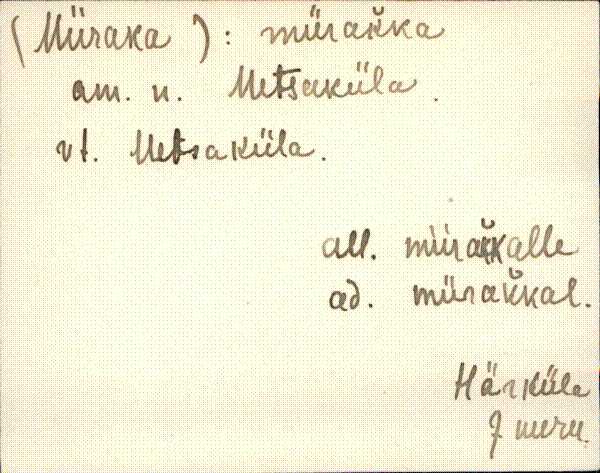 (Müraka): mürak̆ka
am. n. Metsaküla.
vt. Metsaküla.
all. mürak̆kalle
ad. mürak̆kal.
Härküla
J meru.